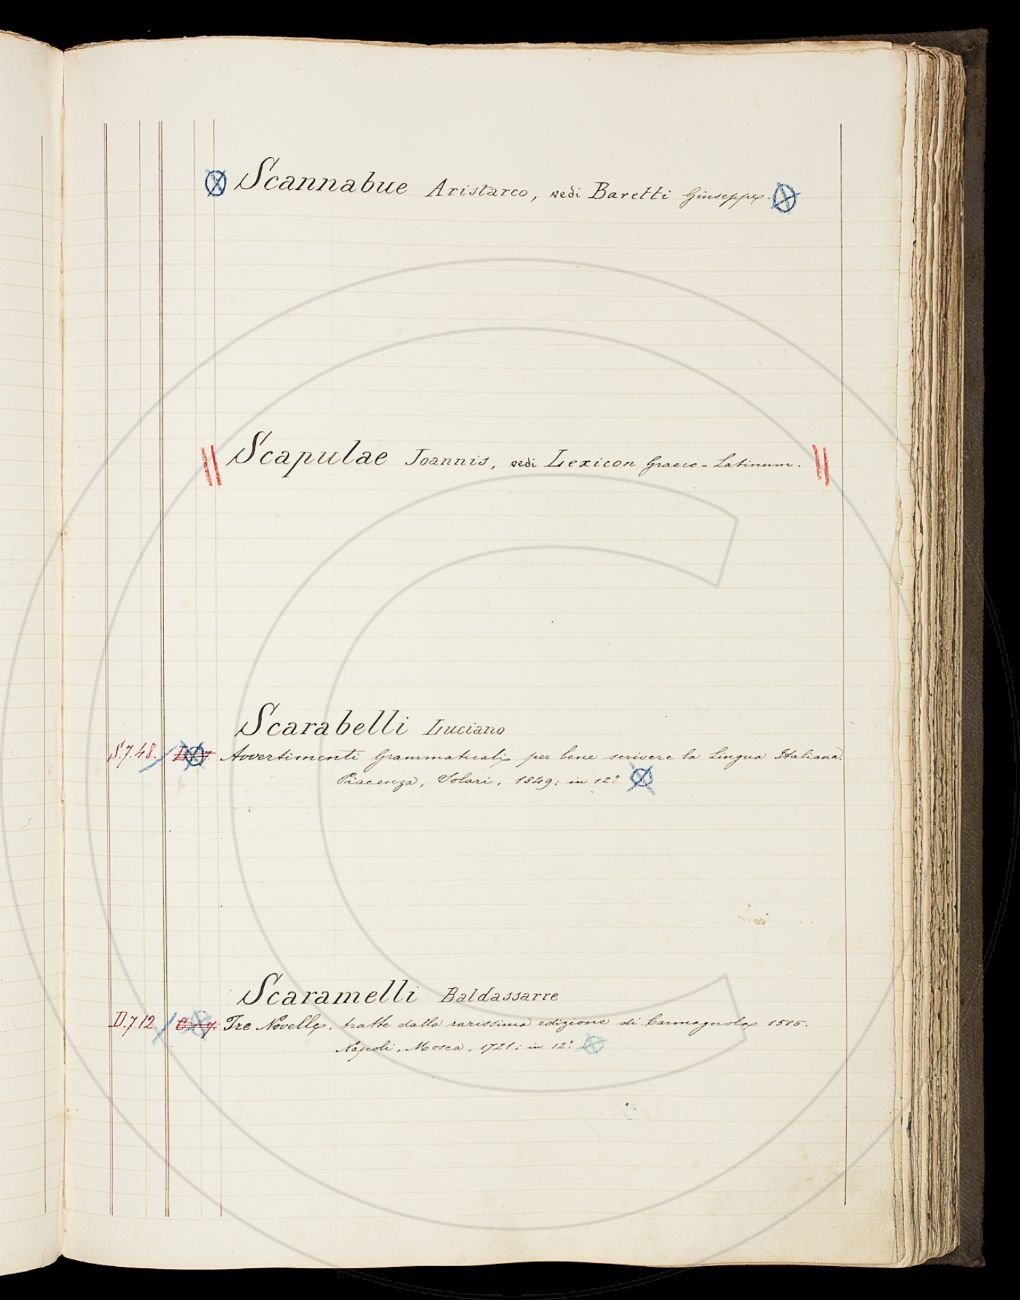 Scannabue Aristarco, vedi Baretti Giuseppe.
Scapulae Joannis, vedi Lexicon Graeco-Latinum.
Scarabelli Luciano
S.7.48. Avvertimenti Grammaticali per bene scrivere la Lingua Italiana
Piacenza, Solari, 1849; in 12°
Scaramelli Baldassarre
D.7.12 Tre Novelle, tratte dalla rarissima edizione di Carmagnola 1585.
Napoli, Mosca, 1721; in 12°